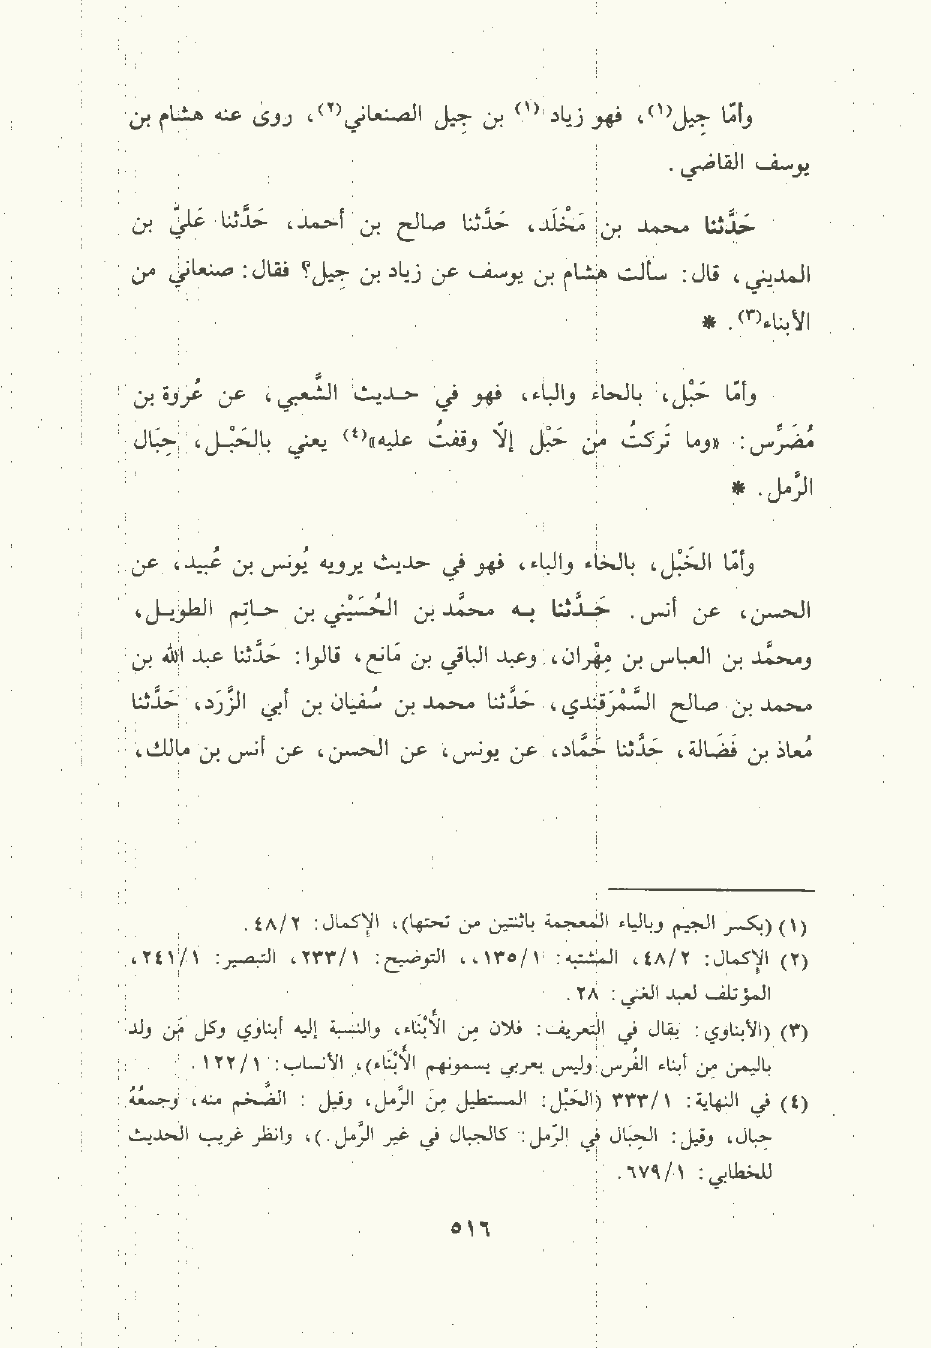 وأمّا جِيل(١)، فهو زياد (١) بن جِيل الصنعاني(٢)، روى عنه هشام بن
يوسف القاضي.
حَدَّثنا محمد بن مَخْلَد، حَدَّثنا صالح بن أحمد، حَدَّثنا عَليُّ بن
المديني، قال: سألت هشام بن يوسف عن زياد بن جِيل؟ فقال: صنعاني من
الأبناء(٣). *
وأمّا حَبْل، بالحاء والباء، فهو في حديث الشَّعبي، عن عُروة بن
مُضَرِّس: «وما تَركتُ من حَبْل إلاّ وقفتُ عليه»(٤) يعني بالحَبْل، حِبَال
الرَّمل. *
وأمّا الخَبْل، بالخاء والباء، فهو في حديث يرويه يُونس بن عُبيد، عن
الحسن، عن أنس. حَدَّثنا به محمَّد بن الحُسَيْني بن حاتِم الطويل،
ومحمَّد بن العباس بن مِهْران، وعبد الباقي بن مَانع، قالوا: حَدَّثنا عبد الله بن
محمد بن صالح السَّمْرَقَندي، حَدَّثنا محمد بن سُفيان بن أبي الزَّرَد، حَدَّثنا
مُعاذ بن فَضَالة، حَدَّثنا حَمَّاد، عن يونس، عن الحسن، عن أنس بن مالك،
(١) (بكسر الجيم وبالياء المعجمة باثنتين من تحتها)، الإكمال: ٤٨/٢.
(٢) الإكمال: ٤٨/٢، المشتبه: ١٣٥/١،، التوضيح: ٢٣٣/١، التبصير: ٢٤١/١،
المؤتلف لعبد الغني: ٢٨.
(٣) (الأبناوي: يقال في التعريف: فلان مِن الأَبْنَاء، والنسبة إليه أبناوي وكل مَن ولد
باليمن مِن أبناء الفُرس وليس بعربي يسمونهم الأبْنَاء)، الأنساب: ١٢٢/١.
(٤) في النهاية: ٣٣٣/١ (الحَبْل: المستطيل مِنَ الرَّمل، وقيل: الضَّخم منه، وجمعُهُ:
حِبال، وقيل: الحِبَال في الرّمل: كالجبال في غير الرَّمل.)، وانظر غريب الحديث
للخطابي: ٦٧٩/١.
٥١٦